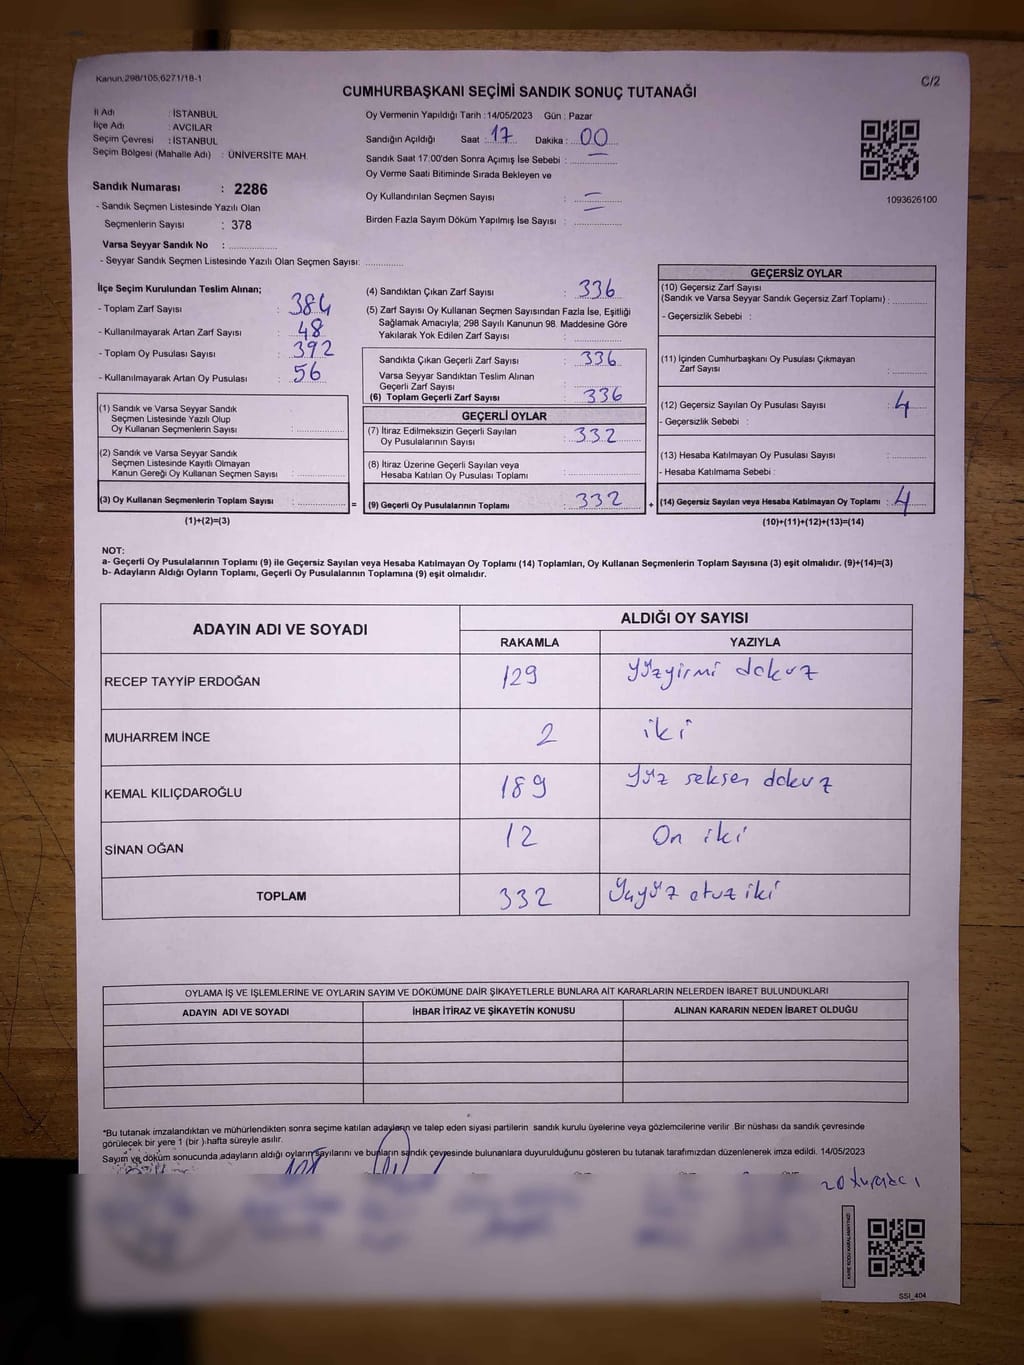 Kanun:298/105,6271/18-1
C/2
CUMHURBAŞKANI SEÇİMİ SANDIK SONUÇ TUTANAĞI
İl Adı : İSTANBUL
İlçe Adı : AVCILAR
Seçim Çevresi : İSTANBUL
Seçim Bölgesi (Mahalle Adı) : ÜNİVERSİTE MAH.
Oy Vermenin Yapıldığı Tarih : 14/05/2023 Gün : Pazar
Sandığın Açıldığı Saat : 17 Dakika : 00
Sandık Saat 17:00'den Sonra Açımış İse Sebebi :
Oy Verme Saati Bitiminde Sırada Bekleyen ve
Oy Kullandırılan Seçmen Sayısı :
Birden Fazla Sayım Döküm Yapılmış İse Sayısı :
1093626100
Sandık Numarası : 2286
- Sandık Seçmen Listesinde Yazılı Olan
Seçmenlerin Sayısı : 378
Varsa Seyyar Sandık No :
- Seyyar Sandık Seçmen Listesinde Yazılı Olan Seçmen Sayısı:
İlçe Seçim Kurulundan Teslim Alınan;
- Toplam Zarf Sayısı : 384
- Kullanılmayarak Artan Zarf Sayısı : 48
- Toplam Oy Pusulası Sayısı : 392
- Kullanılmayarak Artan Oy Pusulası : 56
(1) Sandık ve Varsa Seyyar Sandık
Seçmen Listesinde Yazılı Olup
Oy Kullanan Seçmenlerin Sayısı :
(2) Sandık ve Varsa Seyyar Sandık
Seçmen Listesinde Kayıtlı Olmayan
Kanun Gereği Oy Kullanan Seçmen Sayısı :
(3) Oy Kullanan Seçmenlerin Toplam Sayısı : =
(1)+(2)=(3)
(4) Sandıktan Çıkan Zarf Sayısı : 336
(5) Zarf Sayısı Oy Kullanan Seçmen Sayısından Fazla İse, Eşitliği
Sağlamak Amacıyla; 298 Sayılı Kanunun 98. Maddesine Göre
Yakılarak Yok Edilen Zarf Sayısı :
Sandıkta Çıkan Geçerli Zarf Sayısı : 336
Varsa Seyyar Sandıktan Teslim Alınan
Geçerli Zarf Sayısı :
(6) Toplam Geçerli Zarf Sayısı : 336
GEÇERLİ OYLAR
(7) İtiraz Edilmeksizin Geçerli Sayılan
Oy Pusulalarının Sayısı : 332
(8) İtiraz Üzerine Geçerli Sayılan veya
Hesaba Katılan Oy Pusulası Toplamı :
(9) Geçerli Oy Pusulalarının Toplamı : 332 +
GEÇERSİZ OYLAR
(10) Geçersiz Zarf Sayısı
(Sandık ve Varsa Seyyar Sandık Geçersiz Zarf Toplamı) :
- Geçersizlik Sebebi :
(11) İçinden Cumhurbaşkanı Oy Pusulası Çıkmayan
Zarf Sayısı :
(12) Geçersiz Sayılan Oy Pusulası Sayısı : 4
- Geçersizlik Sebebi :
(13) Hesaba Katılmayan Oy Pusulası Sayısı :
- Hesaba Katılmama Sebebi :
(14) Geçersiz Sayılan veya Hesaba Katılmayan Oy Toplamı : 4
(10)+(11)+(12)+(13)=(14)
NOT:
a- Geçerli Oy Pusulalarının Toplamı (9) ile Geçersiz Sayılan veya Hesaba Katılmayan Oy Toplamı (14) Toplamları, Oy Kullanan Seçmenlerin Toplam Sayısına (3) eşit olmalıdır. (9)+(14)=(3)
b- Adayların Aldığı Oyların Toplamı, Geçerli Oy Pusulalarının Toplamına (9) eşit olmalıdır.
ADAYIN ADI VE SOYADI ALDIĞI OY SAYISI
RAKAMLA YAZIYLA
RECEP TAYYİP ERDOĞAN 129 Yüzyirmi dokuz
MUHARREM İNCE 2 iki
KEMAL KILIÇDAROĞLU 189 Yüz seksen dokuz
SİNAN OĞAN 12 On iki
TOPLAM 332 Üçyüz otuz iki
OYLAMA İŞ VE İŞLEMLERİNE VE OYLARIN SAYIM VE DÖKÜMÜNE DAİR ŞİKAYETLERLE BUNLARA AİT KARARLARIN NELERDEN İBARET BULUNDUKLARI
ADAYIN ADI VE SOYADI İHBAR İTİRAZ VE ŞİKAYETİN KONUSU ALINAN KARARIN NEDEN İBARET OLDUĞU
*Bu tutanak imzalandıktan ve mühürlendikten sonra seçime katılan adayların ve talep eden siyasi partilerin sandık kurulu üyelerine veya gözlemcilerine verilir. Bir nüshası da sandık çevresinde
görülecek bir yere 1 (bir ) hafta süreyle asılır.
Sayım ve döküm sonucunda adayların aldığı oyların sayılarını ve bunların sandık çevresinde bulunanlara duyurulduğunu gösteren bu tutanak tarafımızdan düzenlenerek imza edildi. 14/05/2023
SSI_404